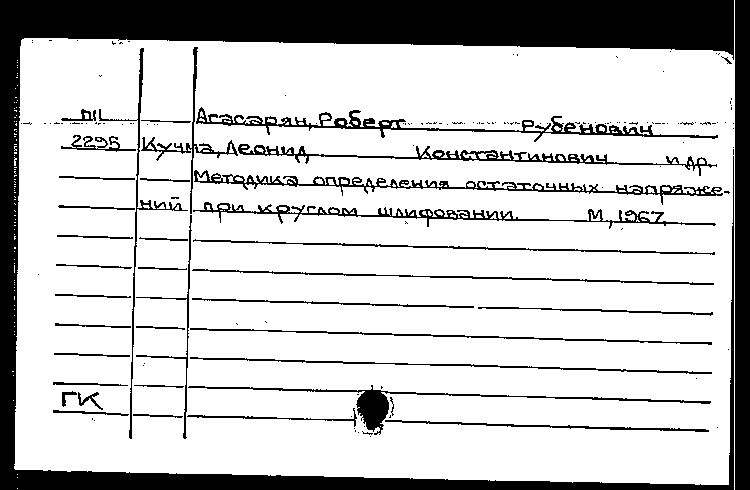 Агасарян, Роберт Рубенович
2295 Кучма, Леонид Константинович и др.
Методика определения остаточных напряже-
ний при круглом шлифовании. М., 1967.
ГК